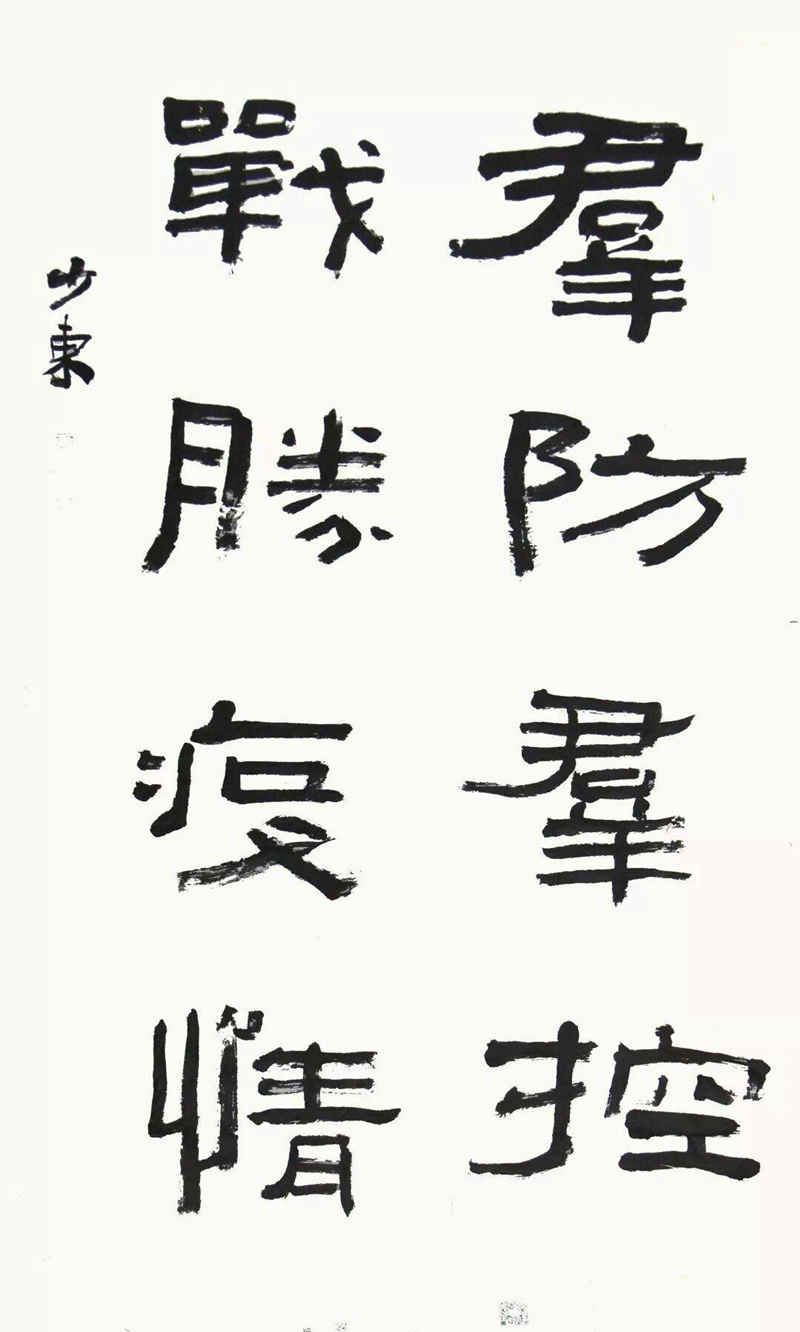 羣防羣控
戰勝疫情
少東